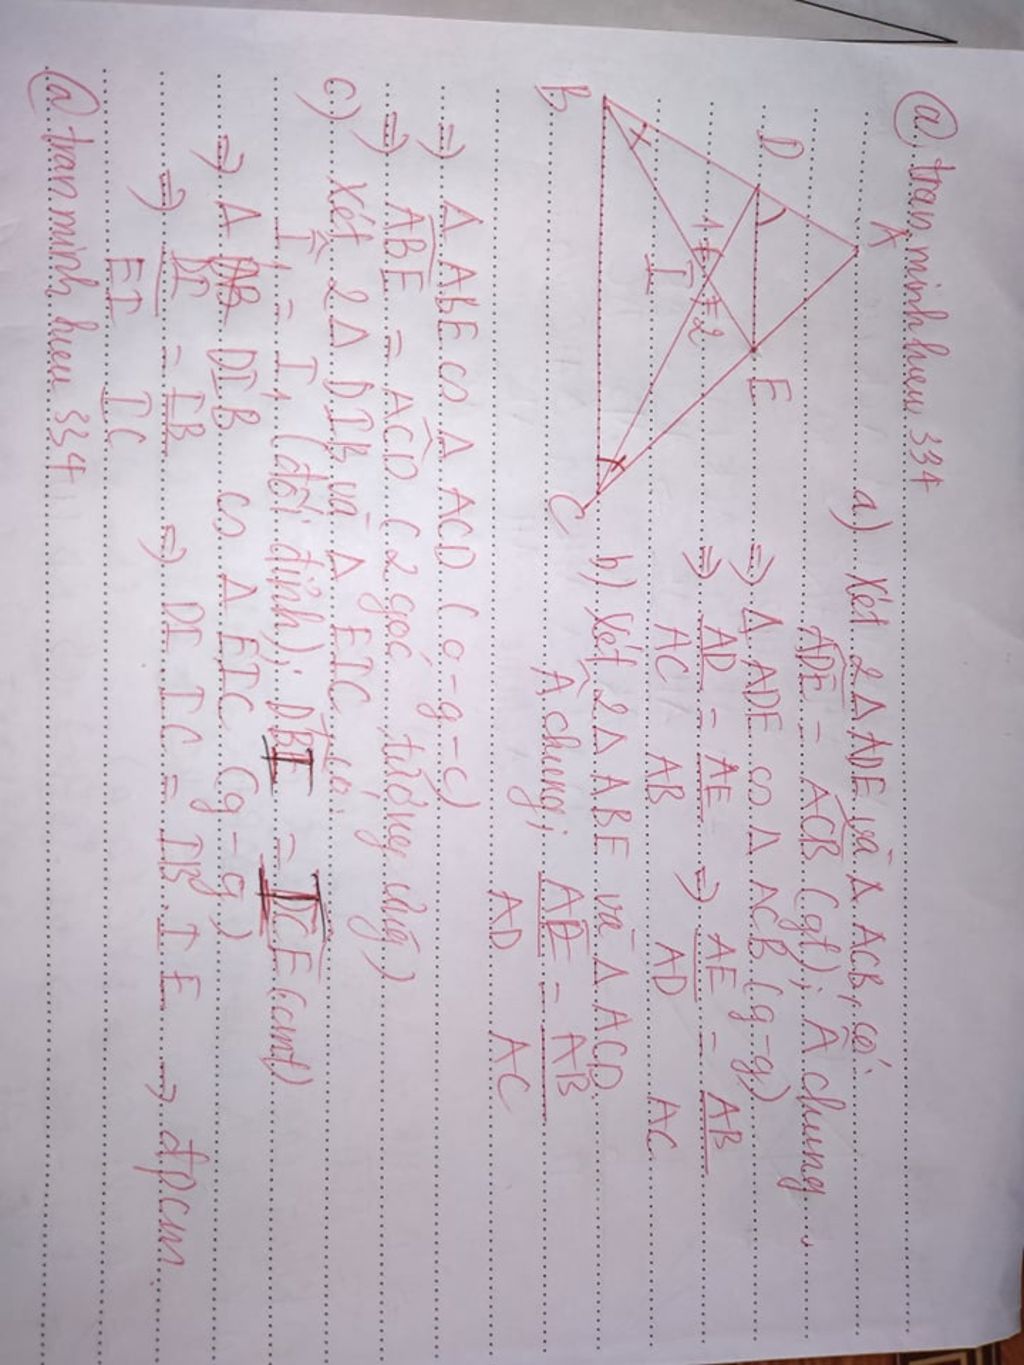 @tranminhhieu334
A
D
E
1
2
I
B
C
a) Xét 2Δ ADE và Δ ACB, có:
ADE = ACB (gt); Â chung
⇒ Δ ADE ∽ Δ ACB (g-g)
⇒ AD/AC = AE/AB ⇒ AE/AD = AB/AC
b) Xét 2Δ ABE và Δ ACD:
Â chung; AE/AD = AB/AC
⇒ Δ ABE ∽ Δ ACD (c-g-c)
⇒ ABE = ACD (2 góc tương ứng)
c) Xét 2Δ DIB và Δ EIC có:
= (đối đỉnh); DBI = ICE (cmt)
⇒ Δ DIB ∽ Δ EIC (g-g)
⇒ DI/EI = IB/IC ⇒ DI.IC = IB.IE → đpcm.
@tranminhhieu334